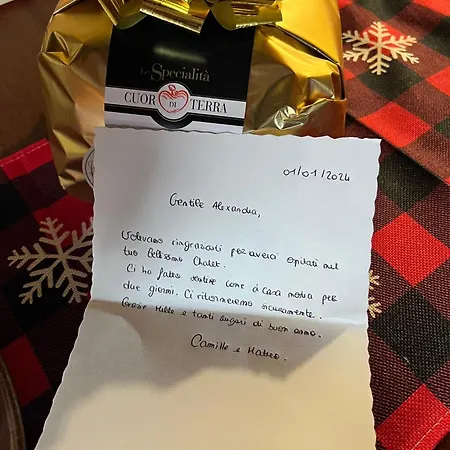 le Specialità
CUOR DI TERRA
01/01/2024
Gentile Alexandra,
Volevamo ringraziarti per averci ospitati nel
tuo bellissimo Chalet.
Ci ha fatto sentire come a casa nostra per
due giorni. Ci ritorneremo sicuramente.
Grazie Mille e tanti auguri di buon anno.
Camille e Matteo.